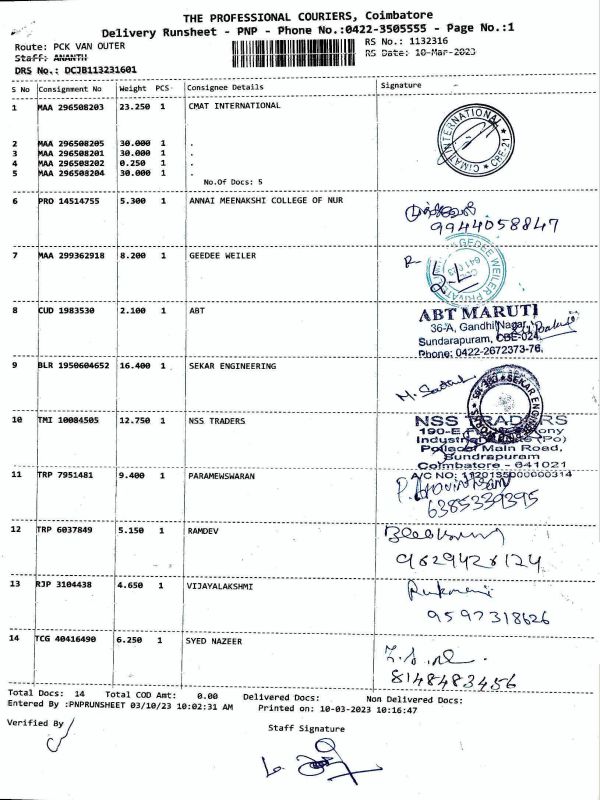 THE PROFESSIONAL COURIERS, Coimbatore
Delivery Runsheet - PNP - Phone No.:0422-3505555 - Page No.:1
Route: PCK VAN OUTER
RS No.: 1132316
Staff: ANANTH
RS Date: 10-Mar-2023
DRS No.: DCJB113231601
S No Consignment No Weight PCS Consignee Details Signature
1 MAA 296508203 23.250 1 CMAT INTERNATIONAL
CIMAT INTERNATIONAL CBE-21
2 MAA 296508205 30.000 1 .
3 MAA 296508201 30.000 1 .
4 MAA 296508202 0.250 1 .
5 MAA 296508204 30.000 1 .
No.Of Docs: 5
6 PRO 14514755 5.300 1 ANNAI MEENAKSHI COLLEGE OF NUR
9944058847
7 MAA 299362918 8.200 1 GEEDEE WEILER
GEDEE WEILER PRIVATE
8 CUD 1983530 2.100 1 ABT
ABT MARUTI
36-A, Gandhi Nagar,
Sundarapuram, CBE-024.
Phone: 0422-2672373-76.
9 BLR 1950604652 16.400 1 SEKAR ENGINEERING
SEKAR
10 TMI 10084505 12.750 1 NSS TRADERS
NSS TRADERS
190-E
Industrial (Po)
Pollachi Main Road,
Sundrapuram
Coimbatore - 641021
A/C NO: 1120135000000314
11 TRP 7951481 9.400 1 PARAMEWSWARAN
6385339395
12 TRP 6037849 5.150 1 RAMDEV
9629426124
13 RJP 3104438 4.650 1 VIJAYALAKSHMI
Rukmani
9597318626
14 TCG 40416490 6.250 1 SYED NAZEER
8148483456
Total Docs: 14 Total COD Amt: 0.00 Delivered Docs: Non Delivered Docs:
Entered By :PNPRUNSHEET 03/10/23 10:02:31 AM Printed on: 10-03-2023 10:16:47
Verified By
Staff Signature